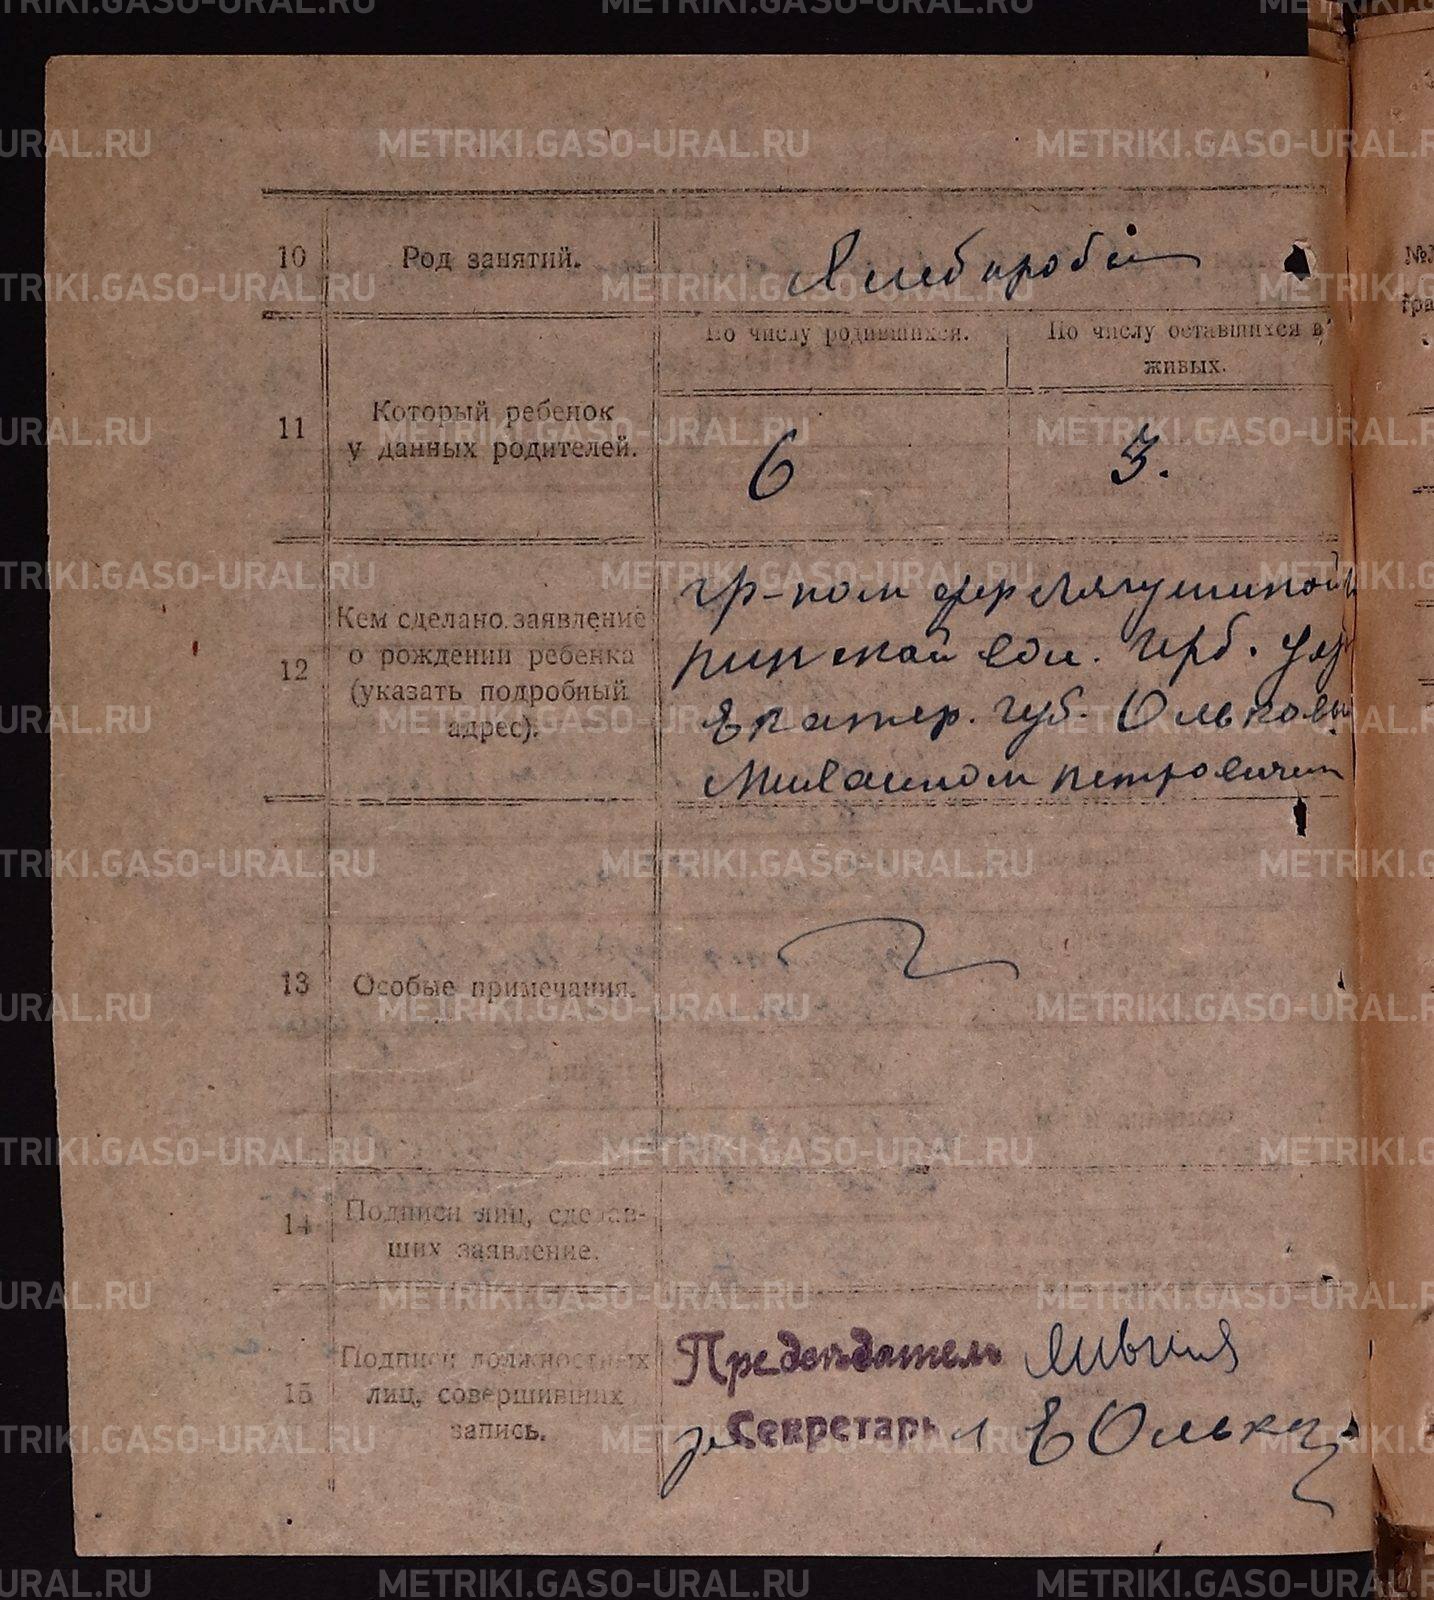 10 Род занятий. Хлебороб
По числу родившихся. По числу оставшихся в живых.
11 Который ребенок
у данных родителей.
6 3.
12 Кем сделано заявление
о рождении ребенка
(указать подробный
адрес).
гр-ном дер Лягушиной
ской вол. Ирб. у
Екатер. губ. Ольковы
Михаилом Петровичем
13 Особые примечания.
14 Подписи лиц, сделав-
ших заявление.
15 Подписи должностных
лиц, совершивших
запись.
Председатель
Секретарь Е Ольк
METRIKI.GASO-URAL.RU